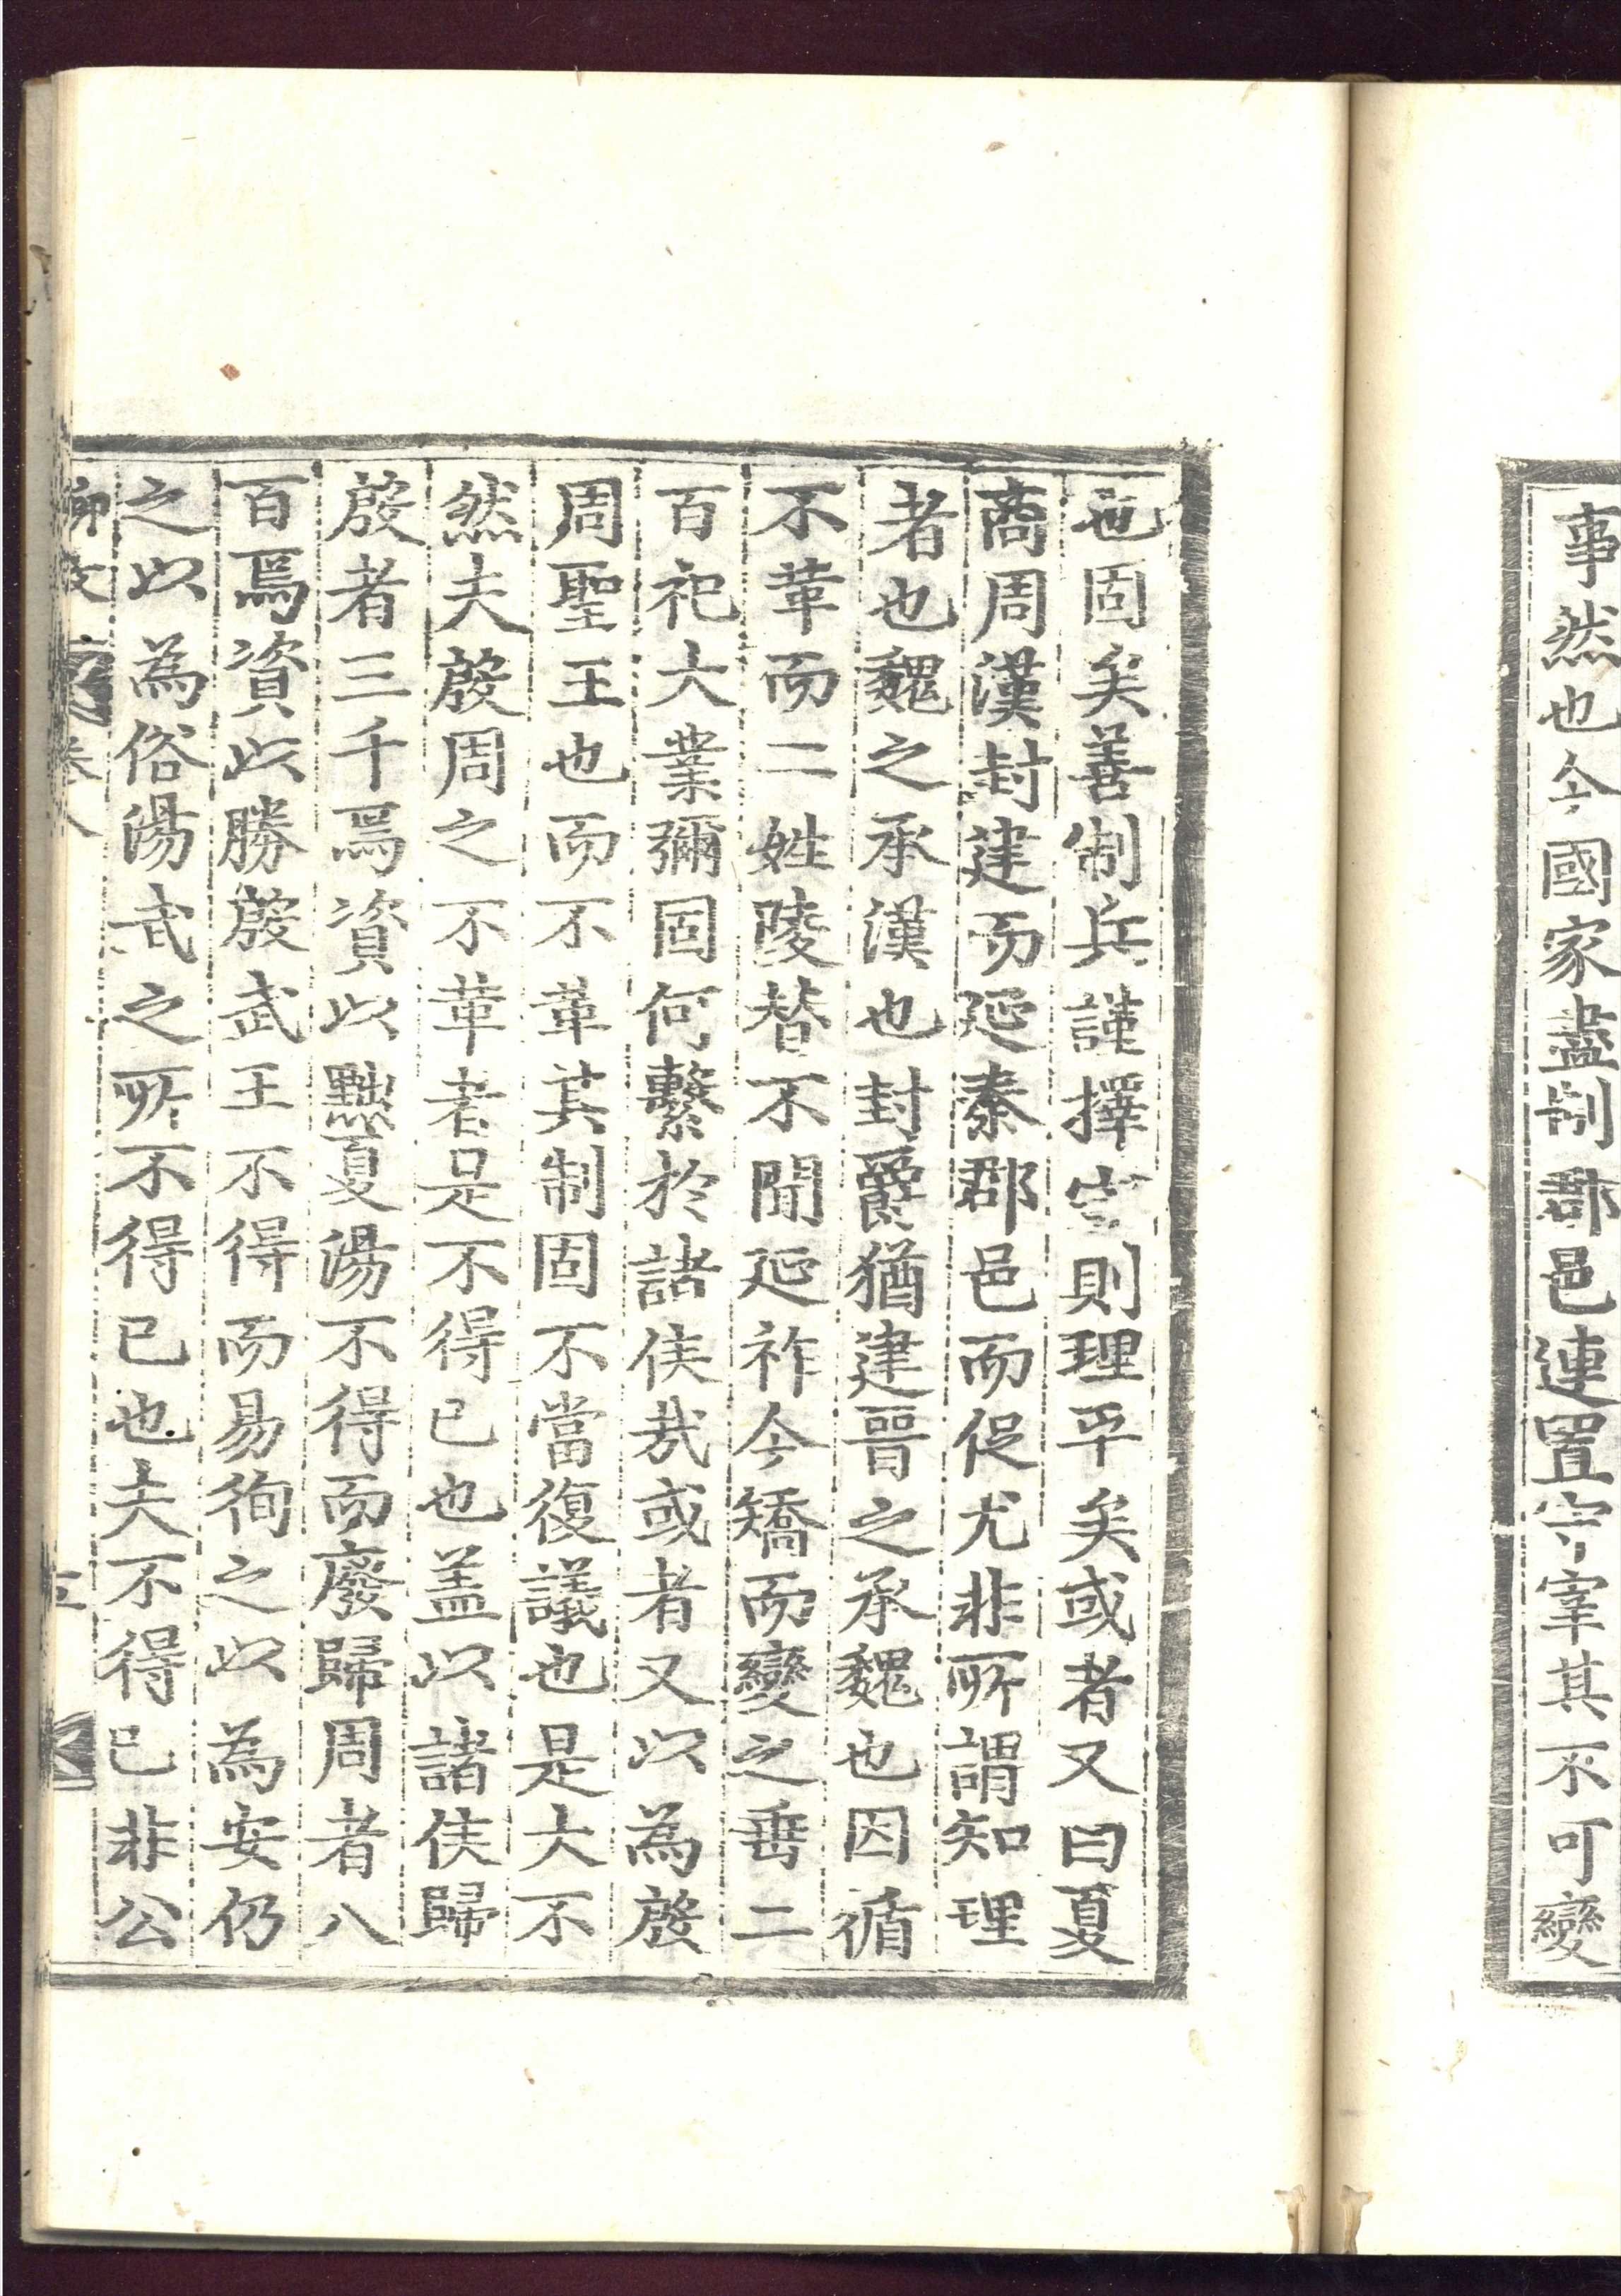 事然也今國家盡制郡邑連置守宰其不可變
也固矣善制兵謹擇守則理平矣或者又曰夏
商周漢封建而延秦郡邑而促尤非所謂知理
者也魏之承漢也封爵猶建晉之承魏也因循
不革而二姓陵替不聞延祚今矯而變之垂二
百祀大業彌固何繫於諸侯㢤或者又以為殷
周聖王也而不革其制固不當復議也是大不
然夫殷周之不革者是不得已也盖以諸侯歸
殷者三千焉資以黜夏湯不得而廢歸周者八
百焉資以勝殷武王不得而易徇之以為安仍
之以為俗湯武之所不得已也夫不得已非公
柳文 卷八